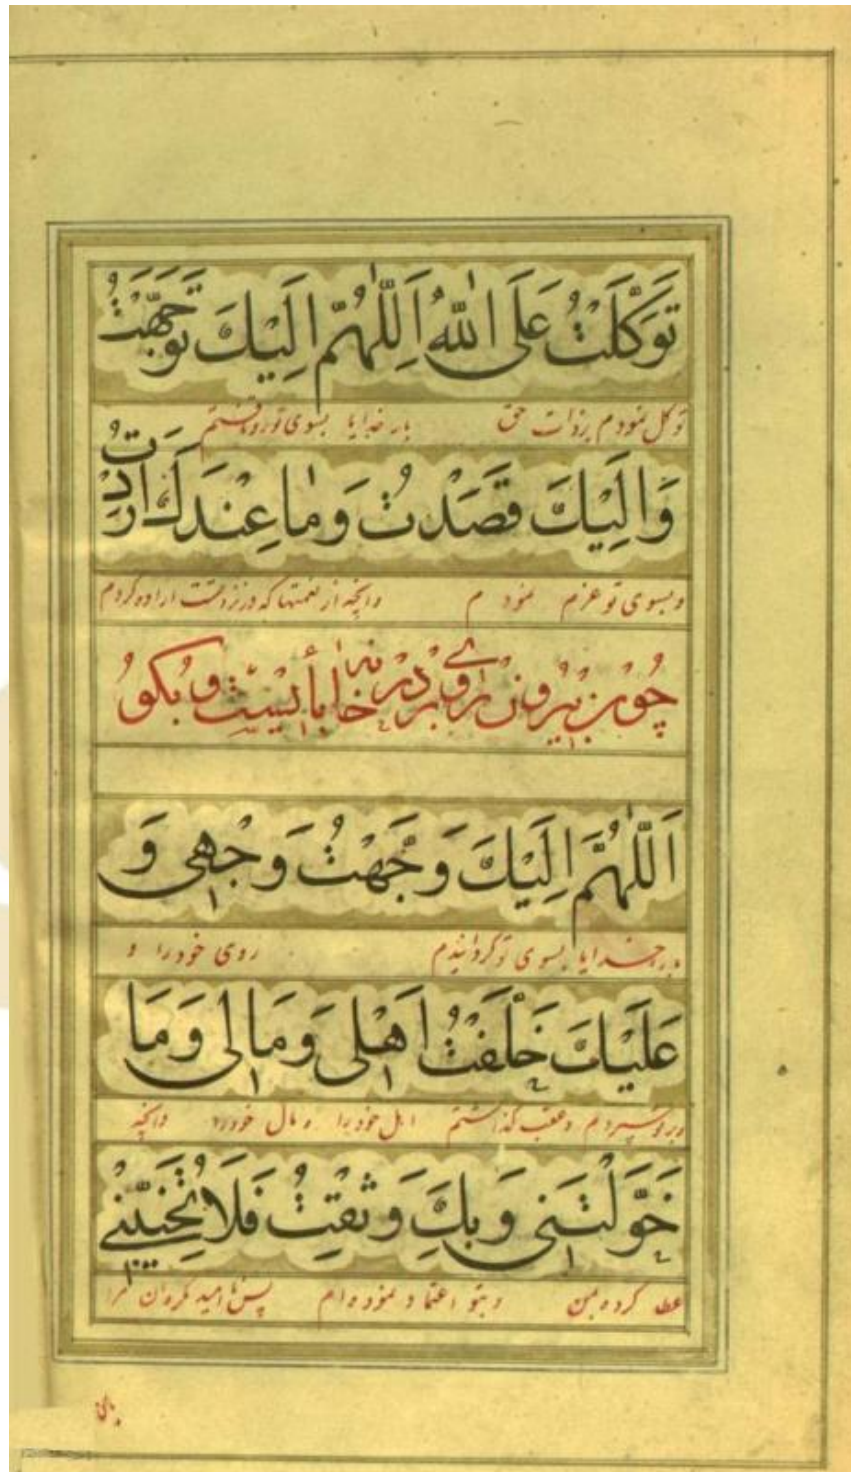 تَوَكَّلْتُ عَلَى اللّٰهِ اَللّٰهُمَّ اِلَيْكَ تَوَجَّهْتُ
توکل نمودم بر ذات حق بار خدایا بسوی تو رو داشتم
وَاِلَيْكَ قَصَدْتُ وَمٰا عِنْدَكَ اَرَدْتُ
و بسوی تو عزم نمودم وانچه از نعمتها که در نزد تست اراده کردم
چون بیرون روی بر در خانه بأیست و بگو
اَللّٰهُمَّ اِلَيْكَ وَجَّهْتُ وَجْهِى وَ
بار خدایا بسوی تو گردانیدم روی خود را و
عَلَيْكَ خَلَّفْتُ اَهْلِى وَمَالِى وَمَا
و بر تو سپردم و عقب گذاشتم اهل خود را و مال خود را وانچه
خَوَّلْتَنِى وَبِكَ وَثِقْتُ فَلَا تُخَيِّبْنِى
عطا کرده بمن و بتو اعتماد نموده ام پس نا امید مگردان مرا